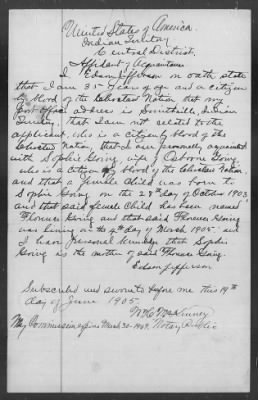 United States of America
Indian Territory
Central District.
Affidavit of Acquaintance
I Edson Jefferson on oath state
that I am 35 years of age and a citizen
by blood of the Choctaw Nation that my
Post Office address is Smithville, Indian
Territory, that I am not related to the
applicant, who is a citizen by blood of the
Choctaw Nation, that I am personally acquainted
with Sophie Going, wife of Osborne Going
who is a citizen by blood of the Choctaw Nation
and that a female child was born to
Sophie Going on the 28th day of October 1903
and that said female child has been named
Florence Going and that said Florence Going
was living on the 4th day of March 1905. and
I have personal knowledge that Sophie
Going is the mother of said Florence Going.
Edson Jefferson
Subscribed and sworn to before me this 19th
day of June 1905.
McKinney
My Commission expires March 30-1909. Notary Public